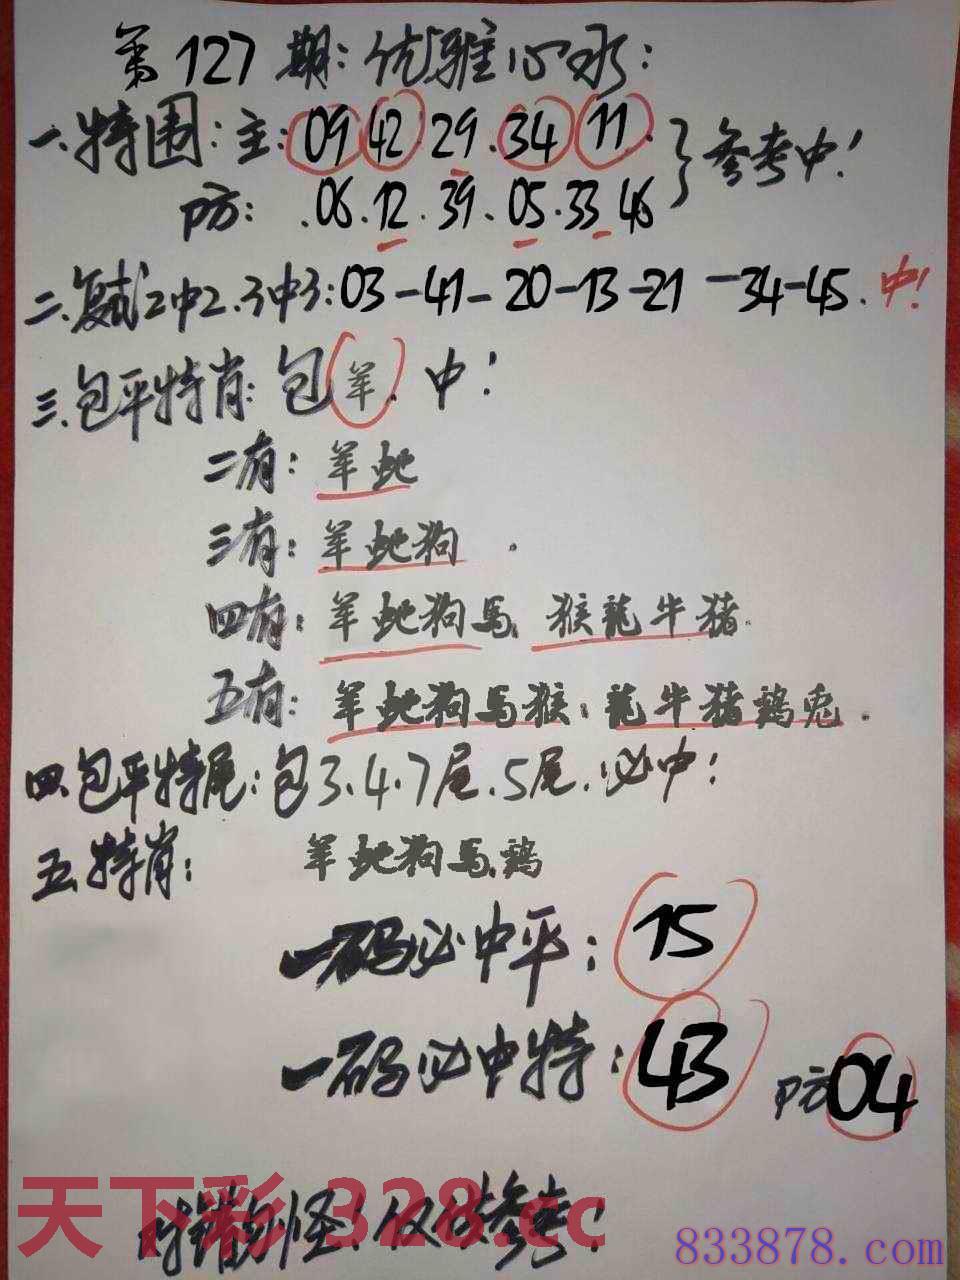 第127期：优雅心水：
一.特围：主：09 42 29.34 11.
防：.06.12.39.05.33 46
}参考中！
二.复式2中2.3中3：03-41-20-13-21-34-45.中！
三.包平特肖：包羊.中！
二有：羊蛇
三有：羊蛇狗.
四有：羊蛇狗马 猴龍牛猪.
五有：羊蛇狗马猴：龍牛猪鷄兔.
四.包平特尾：包3.4.7尾.5尾.必中！
五.特肖：羊蛇狗马鷄
一码必中平：15
一码必中特：43 防04
天下彩 328.cc
错勿怪！仅供参考！
833878.com